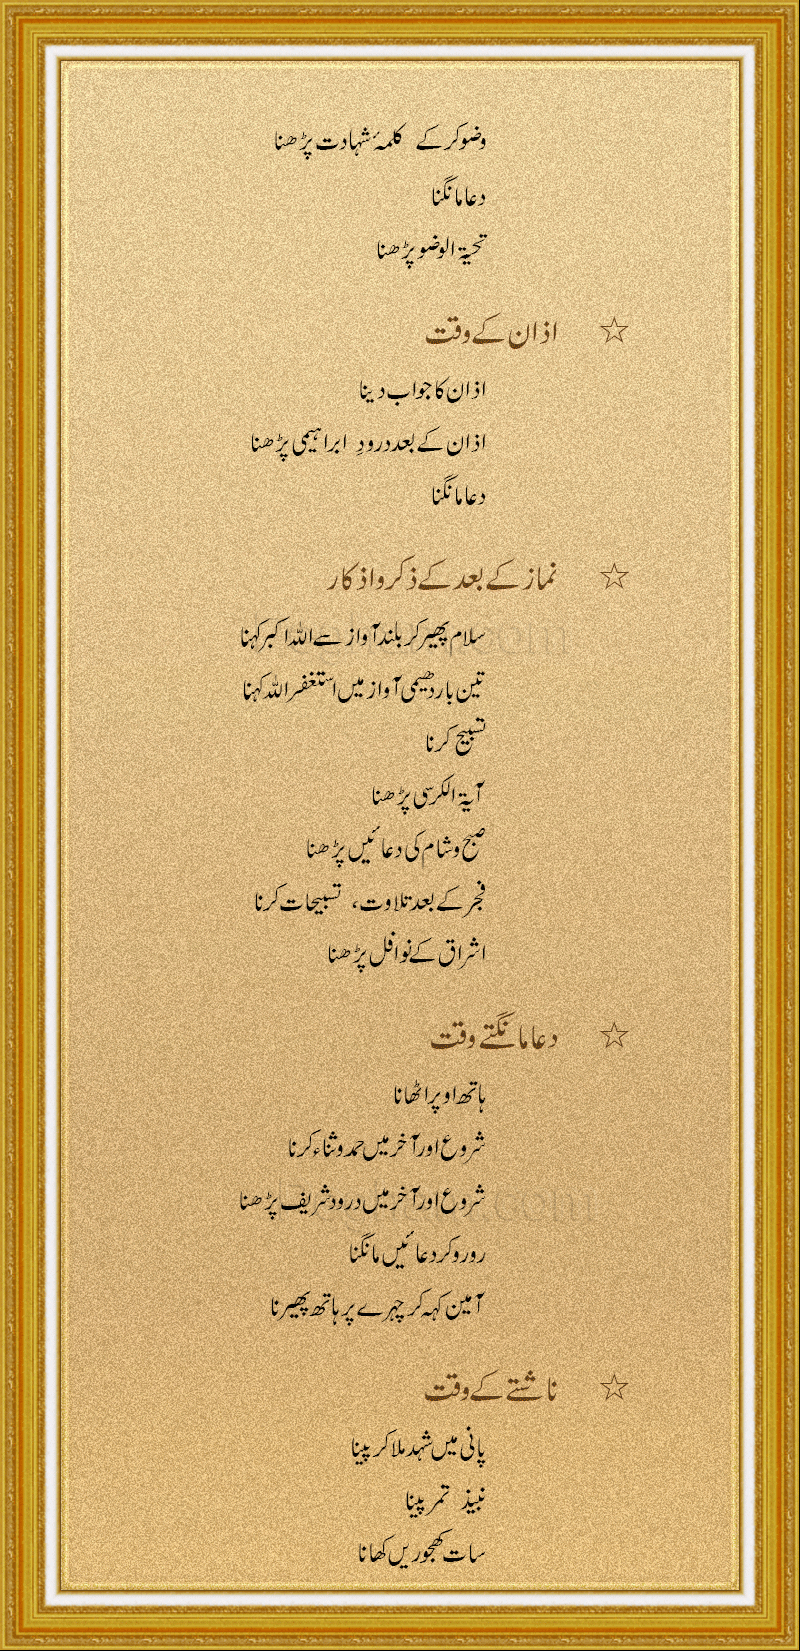 وضو کر کے کلمۂ شہادت پڑھنا
دعا مانگنا
تحیۃ الوضو پڑھنا
☆ اذان کے وقت
اذان کا جواب دینا
اذان کے بعد درودِ ابراہیمی پڑھنا
دعا مانگنا
☆ نماز کے بعد کے ذکر و اذکار
سلام پھیر کر بلند آواز سے اللہ اکبر کہنا
تین بار دھیمی آواز میں استغفر اللہ کہنا
تسبیح کرنا
آیۃ الکرسی پڑھنا
صبح و شام کی دعائیں پڑھنا
فجر کے بعد تلاوت، تسبیحات کرنا
اشراق کے نوافل پڑھنا
☆ دعا مانگتے وقت
ہاتھ اوپر اٹھانا
شروع اور آخر میں حمد و ثناء کرنا
شروع اور آخر میں درود شریف پڑھنا
رو رو کر دعائیں مانگنا
آمین کہہ کر چہرے پر ہاتھ پھیرنا
☆ ناشتے کے وقت
پانی میں شہد ملا کر پینا
نبیذ تمر پینا
سات کھجوریں کھانا